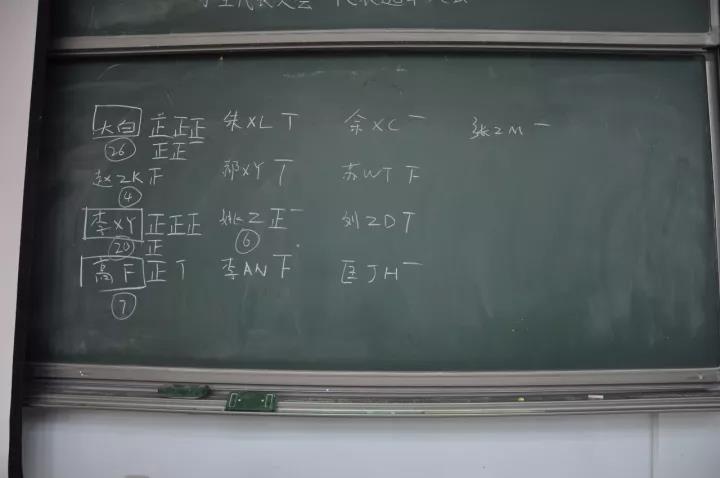 大白 正正正 朱XL T 余XC 一 张ZM 一
26 正正一
赵ZK 正 郑XY T 苏WT 下
4
李XY 正正正 姚Z 正一 刘ZD T
20 正 6
高F 正T 李AN 下 匡JH 一
7